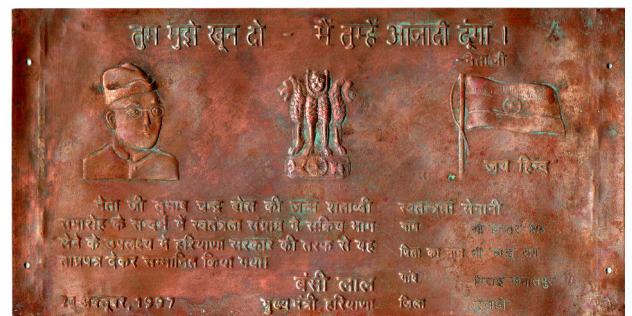 तुम मुझे खून दो - मैं तुम्हें आजादी दूंगा ।
नेता जी
जय हिन्द
नेता जी सुभाष चन्द्र बोस की जन्म शताब्दी
समारोह के सन्दर्भ में स्वतंत्रता संग्राम में सक्रिय भाग
लेने के उपलक्ष्य में हरियाणा सरकार की तरफ से यह
ताम्रपत्र देकर सम्मानित किया गया।
बंसी लाल
मुख्यमंत्री हरियाणा
21 अक्टूबर, 1997
स्वतंत्रता सेनानी
नाम श्री
पिता का नाम श्री
गांव
जिला